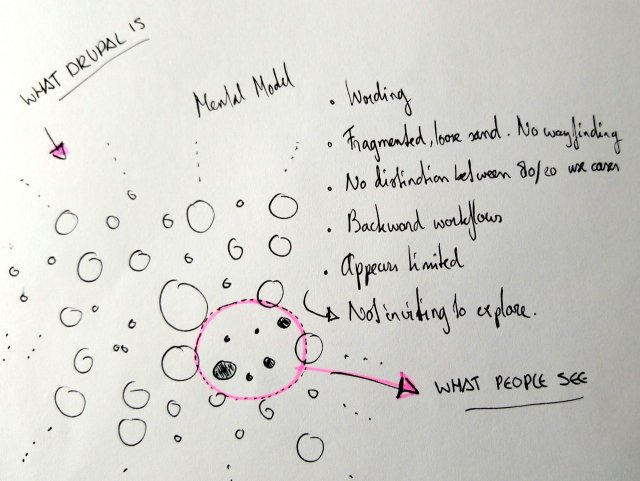 WHAT DRUPAL IS
Mental Model
• Wording
• Fragmented, loose sand. No wayfinding
• No distinction between 80/20 use cases
• Backward workflows
• Appears limited
Not inviting to explore.
WHAT PEOPLE SEE